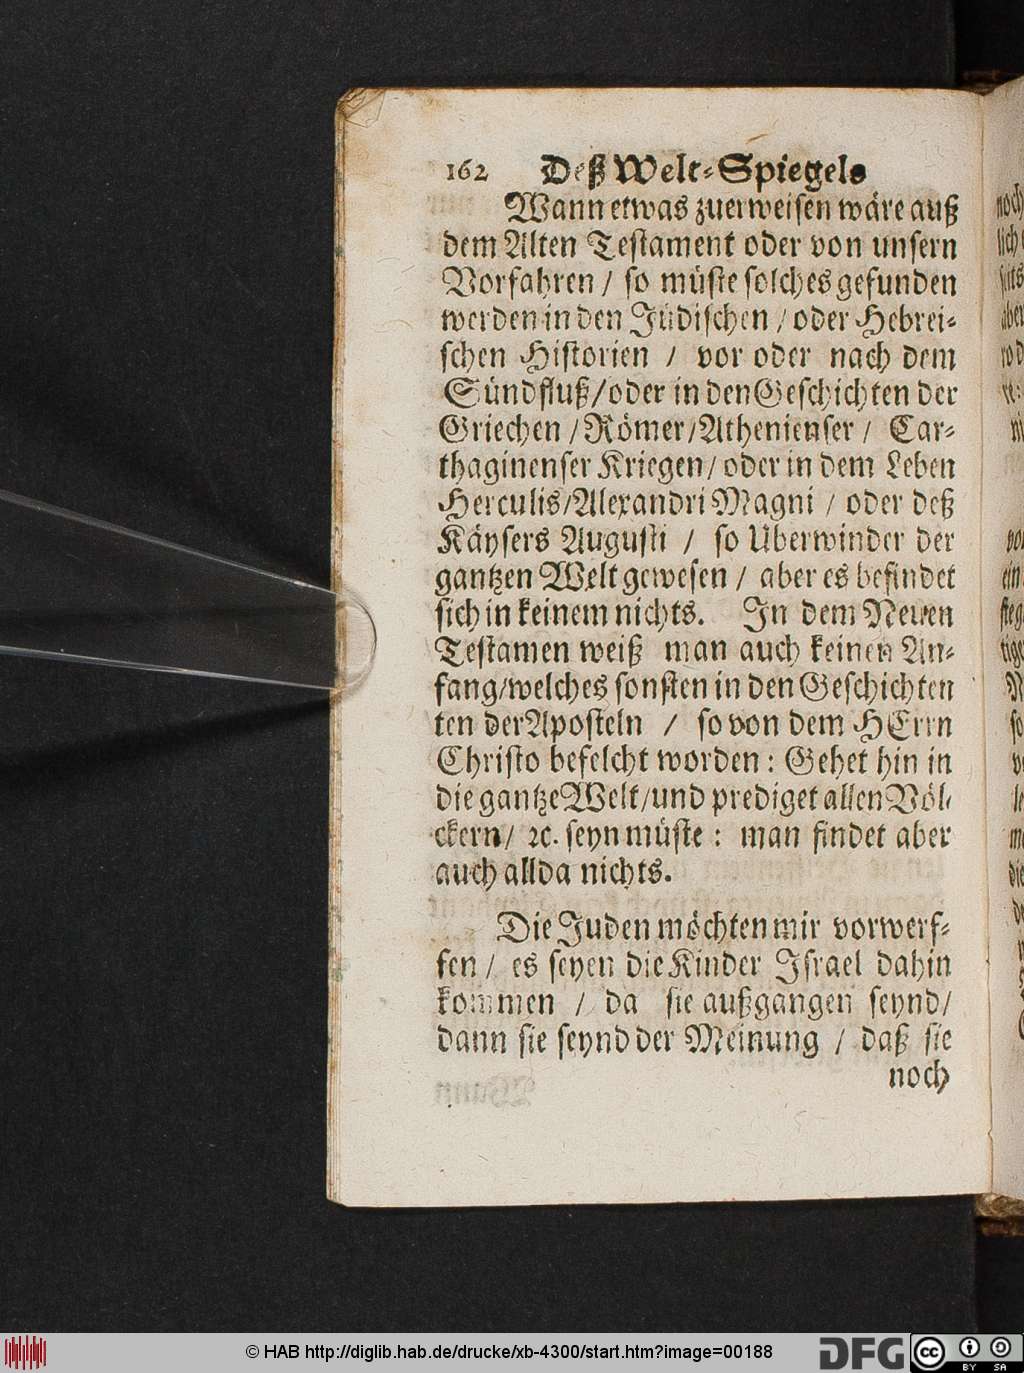 162 Deß Welt-Spiegels
Wann etwas zuerweisen wäre auß
dem Alten Testament oder von unsern
Vorfahren / so müste solches gefunden
werden in den Jüdischen / oder Hebrei-
schen Historien / vor oder nach dem
Sündfluß / oder in den Geschichten der
Griechen / Römer / Athenienser / Car-
thaginenser Kriegen / oder in dem Leben
Herculis / Alexandri Magni / oder deß
Käysers Augusti / so Überwinder der
gantzen Welt gewesen / aber es befindet
sich in keinem nichts. In dem Neuen
Testamen weiß man auch keinen An-
fang / welches sonsten in den Geschichten
ten der Aposteln / so von dem HErrn
Christo befelcht worden : Gehet hin in
die gantze Welt / und prediget allen Völ-
ckern / ꝛc. seyn müste : man findet aber
auch allda nichts.
Die Juden möchten mir vorwerf-
fen / es seyen die Kinder Israel dahin
kommen / da sie außgangen seynd /
dann sie seynd der Meinung / daß sie
noch
© HAB http://diglib.hab.de/drucke/xb-4300/start.htm?image=00188
DFG
cc BY SA